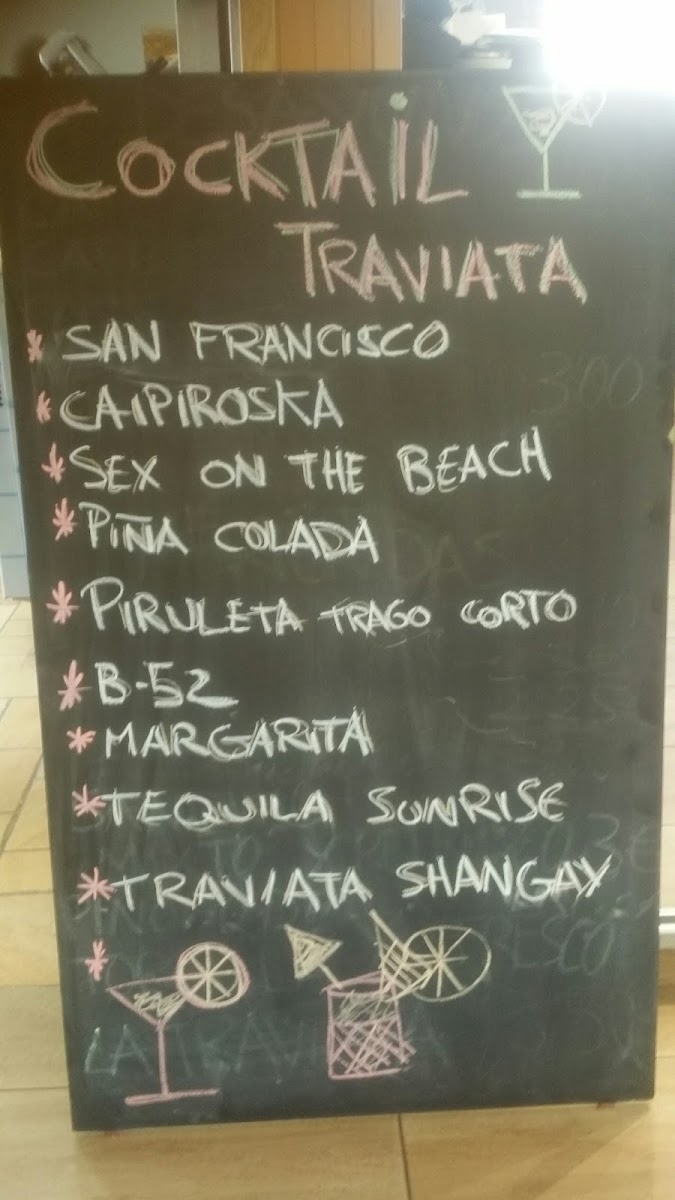 COCKTAIL
TRAVIATA
* SAN FRANCISCO
* CAIPIROSKA
* SEX ON THE BEACH
* PIÑA COLADA
* PIRULETA TRAGO CORTO
* B-52
* MARGARITA
* TEQUILA SUNRISE
* TRAVIATA SHANGAY
*